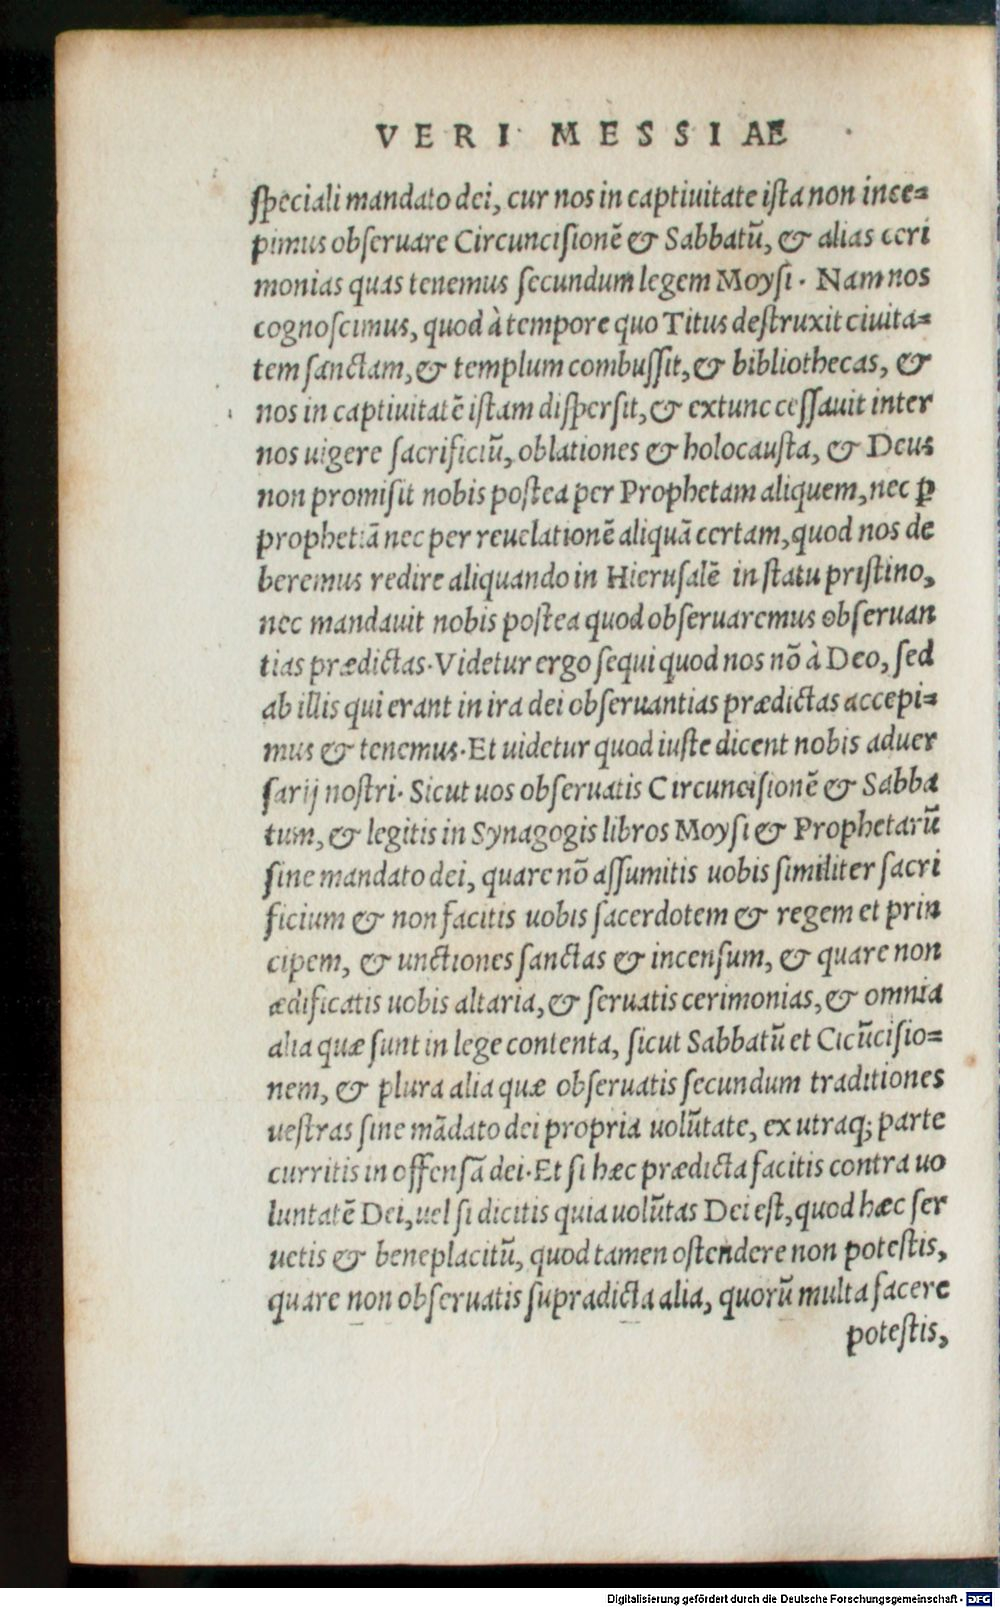 VERI MESSIÆ
speciali mandato dei, cur nos in captiuitate ista non ince=
pimus obseruare Circuncisionē & Sabbatū, & alias ceri
monias quas tenemus secundum legem Moysi. Nam nos
cognoscimus, quod à tempore quo Titus destruxit ciuita=
tem sanctam, & templum combussit, & bibliothecas, &
nos in captiuitatē istam dispersit, & extunc cessauit inter
nos uigere sacrificiū, oblationes & holocausta, & Deus
non promisit nobis postea per Prophetam aliquem, nec ꝑ
prophetiā nec per reuelationē aliquā certam, quod nos de
beremus redire aliquando in Hierusalē in statu pristino,
nec mandauit nobis postea quod obseruaremus obseruan
tias prædictas. Videtur ergo sequi quod nos nō à Deo, sed
ab illis qui erant in ira dei obseruantias prædictas accepi=
mus & tenemus. Et uidetur quod iuste dicent nobis aduer
sarij nostri. Sicut uos obseruatis Circuncisionē & Sabba
tum, & legitis in Synagogis libros Moysi & Prophetarū
sine mandato dei, quare nō assumitis uobis similiter sacri
ficium & non facitis uobis sacerdotem & regem et prin
cipem, & unctiones sanctas & incensum, & quare non
ædificatis uobis altaria, & seruatis cerimonias, & omnia
alia quæ sunt in lege contenta, sicut Sabbatū et Cicūcisio=
nem, & plura alia quæ obseruatis secundum traditiones
uestras sine mādato dei propria uolūtate, ex utraq; parte
curritis in offensā dei. Et si hæc prædicta facitis contra uo
luntatē Dei, uel si dicitis quia uolūtas Dei est, quod hæc ser
uetis & beneplacitū, quod tamen ostendere non potestis,
quare non obseruatis supradicta alia, quorū multa facere
potestis,
Digitalisierung gefördert durch die Deutsche Forschungsgemeinschaft - DFG